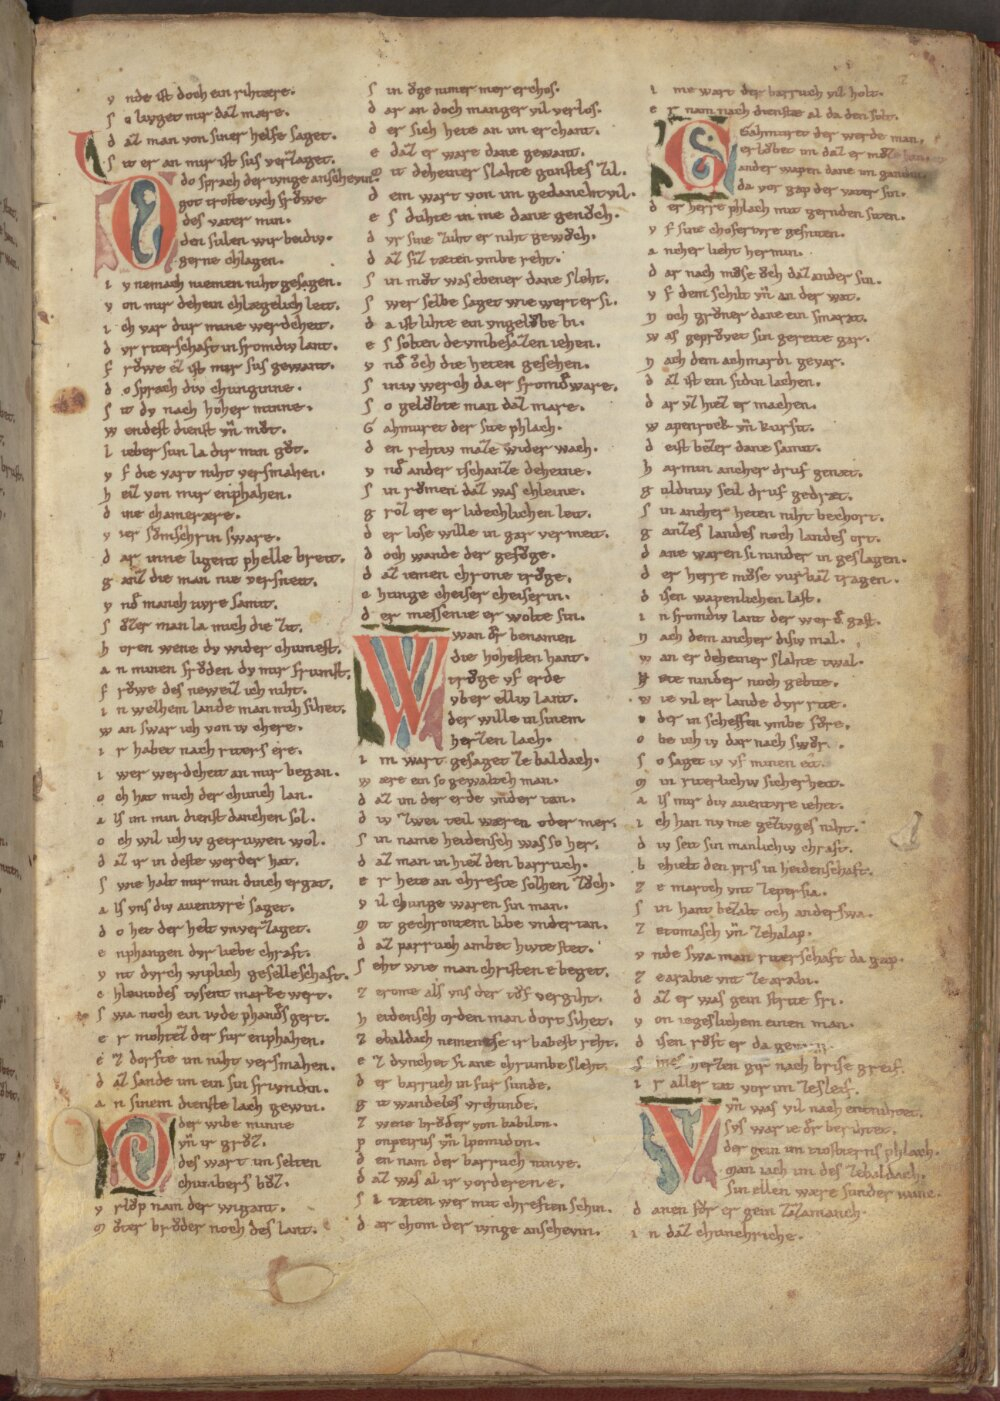 v nde ist doch ein rihtære.
s a luget mir daz mære.
d az man von siner helfe saget.
s it er an mir ist sus verzaget.
do sprach der ivnge anschevin.
got troste iwch fröwe
des vater min.
den svlen wir beidiv
gerne chlagen.
i v nemach niemen niht gesagen.
v on mir dehein chlægelich leit.
i ch var dur mine werdcheit.
d vr riterschaft in fromdiv lant.
f röwe ez ist mir sus gewant.
d o sprach div chuniginne.
s it dv nach hoher minne.
w endest dienst vñ möt.
l ieber sun la dir min göt.
v f die vart niht versmahen.
h eiz von mir enphahen.
d ine chamerære.
v ier sömschrin sware.
d ar inne ligent phelle breit.
g anz die man nie versneit.
v nd manch tivre samit.
s özer man la mich die zit.
h oren wene dv wider chumest.
a n minen fröden dv mir frumst.
f röwe des neweiz ich niht.
i n welhem lande man mih sihet.
w an swar ich von iv chere.
i r habet nach riters ere.
i wer werdcheit an mir began.
o ch hat mich der chunch lan.
a ls im min dienst danchen sol.
o ch wil ich iv getriwen wol.
d az ir in deste werder hat.
s wie halt mir min dinch ergat.
a ls vns div aventvre saget.
d o het der helt vnverzaget.
e nphangen dvr liebe chraft.
v nt dvrch wiplich geselleschaft.
c hleinodes tvsent marke wert.
s wa noch ein ivde phandes gert.
e r mohtez der fur enphahen.
e z dorfte im niht versmahen.
d az sande im ein sin frivndin.
a n sinem dienste lach gewin.
der wibe minne
vñ ir gröz.
des wart im selten
chumbers böz.
v rlöp nam der wigant.
m öter bröder noch des lant.
s in öge nimer mer erchos.
d ar an doch manger vil verlos.
d er sich hete an im erchant.
e daz er ware dane gewant.
m it deheiner slahte gunstes zil.
d em wart von im gedancht vil.
e s duhte in me dane genöch.
d vr sine zuht er niht gewöch.
d az siz tæten vmbe reht.
s in möt was ebener dane sleht.
s wer selbe saget wie wert er si.
d a ist lihte ein vngelöbe bi.
e s solten de vmbesazen iehen.
v nd öch die heten gesehen.
s iniv werch da er fromd ware.
s o gelöbte man daz mare.
G ahmuret der site phlach.
d en rehtiv maze wider wach.
v nd ander tschanze deheine.
s in römen daz was chleine.
g roz ere er lidechlichen leit.
d er lose wille in gar vermeit.
d och wande der geföge.
d az iemen chrone tröge.
c hunge cheiser cheiserin.
d er messenie er wolte sin.
wan ör benamen
die hohesten hant.
tröge vf erde
vber elliv lant.
der wille in sinem
herzen lach.
i m wart gesaget ze baldach.
w ære ein so gewaltech man.
d az im der erde vnder tan.
d iv zwei teil wæren oder mer.
s in name heidensch was so her.
d az man in hiez den barruch.
e r hete an chrefte solhen zöch.
v il chunge waren sin man.
m it gechrontem libe vndertan.
d az parruch ambet hivte stet.
s eht wie man christen e beget.
z e rome als vns der töf vergiht.
h eidensch orden man dort sihet.
z ebaldach nement se ir babest reht.
e z dvnchet si ane chrumbe sleht.
d er barruch in fur sunde.
g it wandelos vrchunde.
z wene bröder von babilon.
p onpeirus vñ ipomidon.
d en nam der barruch ninve.
d az was al ir vorderen e.
s i tæten wer mit chreften schin.
d ar chom der ivnge anschevin.
i me wart der barruch vil holt.
e r nam nach dienste al da den solt.
Gahmuret der werde man.
erlöbet im daz er möze
ander wapen dane im gandin.
da vor gap der vater sin.
d er herre phlach mit gernden siten.
v f sine chofertvre gesniten.
a ncher lieht hermin.
d ar nach möse öch daz ander sin.
v f dem schilt vñ an der wat.
n och gröner dane ein smarat.
w as geprövet sin gereite gar.
n ach dem achmardi gevar.
d az ist ein sidin lachen.
d ar vz hiez er machen.
w apenrock vñ kursit.
d eist bezer dane samit.
h armin ancher druf genæt.
g uldiniv seil druf gedræt.
s in ancher heten niht bechort.
g anzes landes noch landes ort.
d ane waren si ninder in geslagen.
d er herre möse furbaz tragen.
d isen wapenlichen last.
i n fromdiv lant der werd gast.
n ach dem ancher disiv mal.
w an er deheiner slahte twal.
h ete ninder noch gebite.
w ie vil er lande dvr rite.
v der in scheffen vmbe före.
o be ich iv dar nach swör.
s o saget iv vf minen eit.
m in riterlichiv sicherheit.
a ls mir div aventvre iehet.
i ch han nv me gezivges niht.
d iv seit sin manlichiv chraft.
b ehielt den pris in heidenschaft.
z e marroch vnt zepersia.
s in hant bezalt och anderswa.
z etomasch vñ zehalap.
v nde swa man riterschaft da gap.
z earabie vnt zearabi.
d az er was gein strite fri.
v on iegeslichem einen man.
d isen röft er da
s ines herzen gir nach prise greif.
i r aller tat vor im zesleif.
vñ was vil nach entnihtet.
svs war ie ör berihtet.
der gein im tiostierns phlach.
man iach im des zebaldach.
sin ellen ware sunder wane.
d anen för er gein zazamanch.
i n daz chunchriche.